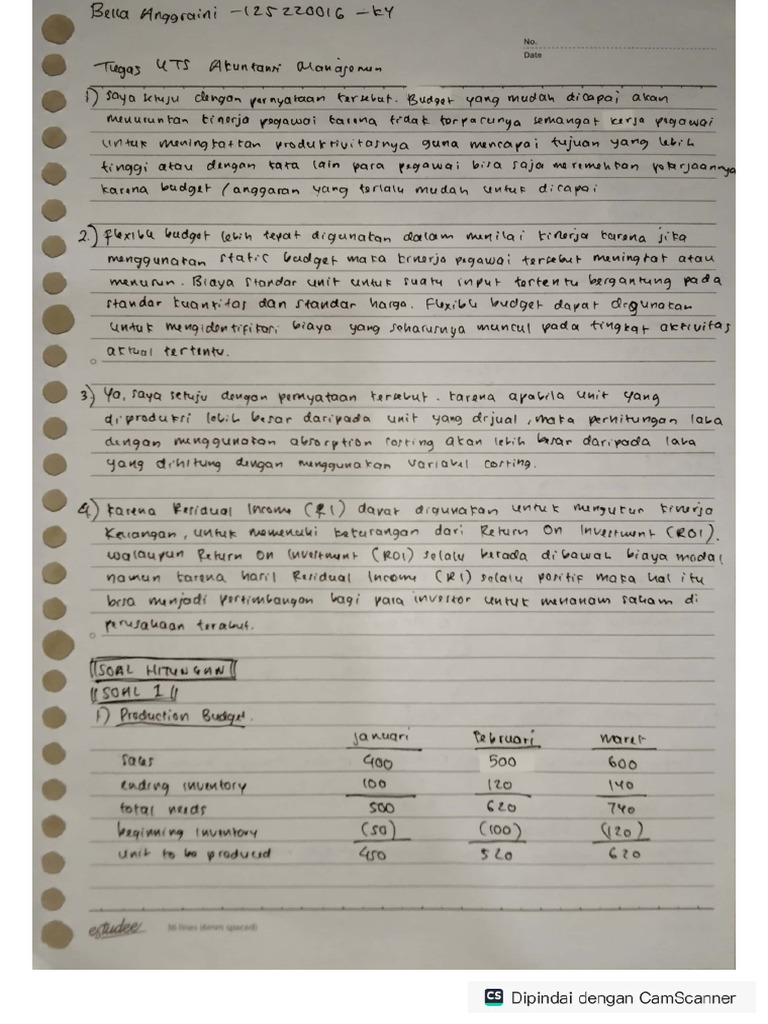 Bella Anggraini - 125220016 - KY
No.
Date
Tugas UTS Akuntansi Manajemen
1) Saya setuju dengan pernyataan tersebut. Budget yang mudah dicapai akan
menurunkan kinerja pegawai karena tidak terpacunya semangat kerja pegawai
untuk meningkatkan produktivitasnya guna mencapai tujuan yang lebih
tinggi atau dengan kata lain para pegawai bisa saja meremehkan pekerjaannya
karena budget / anggaran yang terlalu mudah untuk dicapai
2.) Flexible budget lebih tepat digunakan dalam menilai kinerja karena jika
menggunakan static budget maka kinerja pegawai tersebut meningkat atau
menurun. Biaya standar unit untuk suatu input tertentu bergantung pada
standar kuantitas dan standar harga. Flexible budget dapat digunakan
untuk mengidentifikasi biaya yang seharusnya muncul pada tingkat aktivitas
aktual tertentu.
3) Ya, saya setuju dengan pernyataan tersebut. Karena apabila unit yang
diproduksi lebih besar daripada unit yang dijual, maka perhitungan laba
dengan menggunakan absorption costing akan lebih besar daripada laba
yang dihitung dengan menggunakan variabel costing.
4) Karena Residual Income (RI) dapat digunakan untuk mengukur kinerja
Keuangan, untuk memenuhi kekurangan dari Return On Investment (ROI).
walaupun Return On Investment (ROI) selalu berada dibawah biaya modal
namun karena hasil Residual Income (RI) selalu positif maka hal itu
bisa menjadi pertimbangan bagi para investor untuk menanam saham di
perusahaan tersebut.
SOAL HITUNGAN
SOAL 1
1) Production Budget.
Januari Februari Maret
Sales 400 500 600
ending inventory 100 120 140
total needs 500 620 740
beginning inventory (50) (100) (120)
unit to be produced 450 520 620
estudee 36 lines (6mm spaced)
CS Dipindai dengan CamScanner